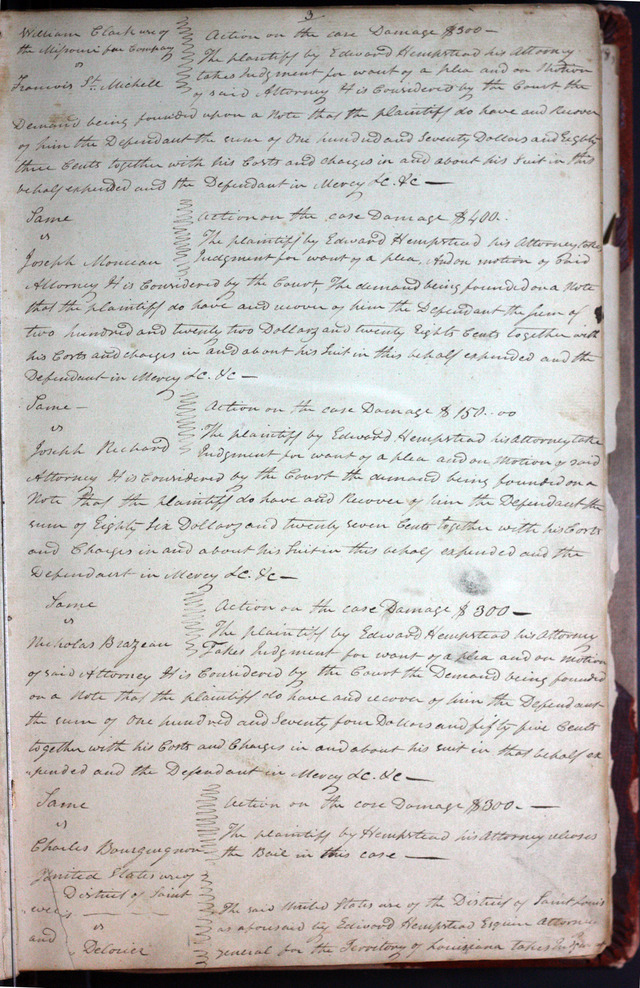 3
William Clark use of
the Missouri fur Company
vs
Francois St. Michell
Action on the case Damage $300 —
The plaintiff by Edward Hempstead his Attorney
takes Judgment for want of a plea and on Motion
of said Attorney It is Considered by the Court the
Demand being founded upon a Note that the plaintiff do have and Recover
of him the Dependant the sum of One hundred and Seventy Dollars and Eighty
three Cents together with his Costs and charges in and about his Suit in this
behalf expended and the Defendant in Mercy &C. &C —
Same
vs
Joseph Monceau
Action on the case Damage $400.
The plaintiff by Edward Hempstead his Attorney take
Judgment for want of a plea. And on motion of Said
Attorney It is Considered by the Court The demand being founded on a Note
that the plaintiff do have and recover of him the Dependant the Sum of
two hundred and twenty two Dollars and twenty Eights Cents together with
his Costs and charges in and about his Suit in this behalf expended and the
Defendant in Mercy &C. &C —
Same —
vs
Joseph Richard
Action on the case Damage $150..00
The plaintiff by Edward Hempstead his Attorney take
Judgment for want of a plea and on Motion of said
Attorney It is Considered by the Court the demand being founded on a
Note that the plaintiff do have and Recover of him the Dependant the
sum of Eighty Six Dollars and twenty seven Cents together with his Costs
and Charges in and about his Suit in this behalf expended and the
Dependant in Mercy &C. &C —
Same
vs
Nicholas Brazeau
Action on the case Damage $300 —
The plaintiff by Edward Hempstead his Attorney
Takes Judgment for want of a plea and on motion
of said Attorney It is Considered by the Court the Demand being founded
on a Note that the plaintiff do have and recover of him the Dependant
the sum of One hundred and Seventy four Dollars and fifty five Cents
together with his Costs and Charges in and about his suit in that behalf ex
pended and the Dependant in Mercy &C. &C —
Same
vs
Charles Bourguignon
Action on the case Damage $300. —
The plaintiff by Hempstead his Attorney releases
the Bail in this case —
United States use of
District of Saint
vs
and Delorier
The said United States use of the District of Saint Louis
as aforesaid by Edward Hempstead Esquire Attorney
general for the Territory of Louisiana takes